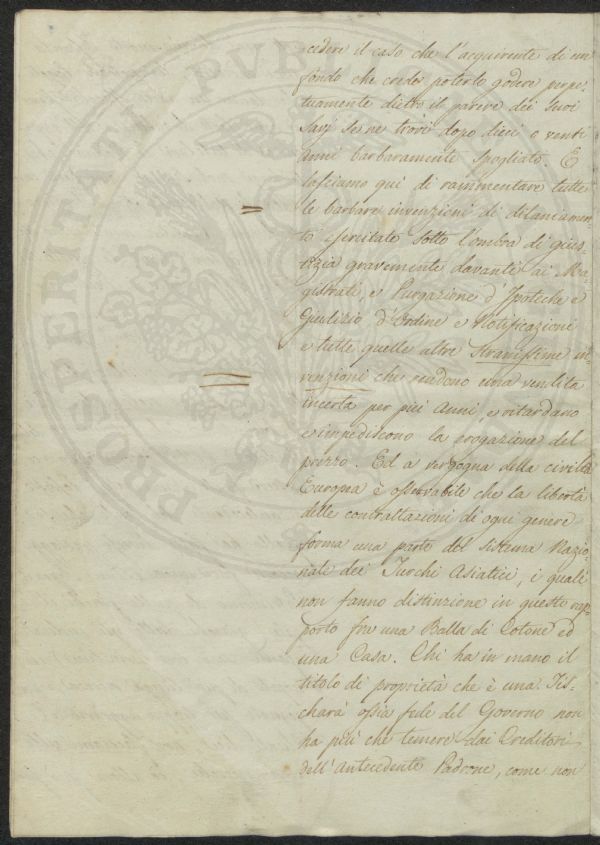 cedere il caso che l'acquirente di un
fondo che crede poterlo godere perpe-
tuamente dietro il parere dei suoi
Savj se ne trovi dopo dieci o venti
anni barbaramente spogliato. E
lasciamo qui di rammentare tutte
le barbare invenzioni di dilaniamen-
to esercitate sotto l'ombra di gius-
tizia gravemente davanti ai Ma-
gistrati, e Purgazione d'Ipoteche e
Giudizio d'Ordine e Notificazioni
e tutte quelle altre stranissime in-
venzioni che rendono una vendita
incerta per più anni, e ritardano
e impediscono la erogazione del
prezzo. Ed a vergogna della civiltà
Europea è osservabile che la libertà
delle contrattazioni di ogni genere
forma una parte del sistema Nazio-
nale dei Turchi Asiatici, i quali
non fanno distinzione in questo rap-
porto fra una Balla di Cotone ed
una Casa. Chi ha in mano il
titolo di proprietà che è una Tis-
charà ossia fede del Governo non
ha più che temere dai Creditori
dell'antecedente Padrone, come non
PROSPERITATI PUBL